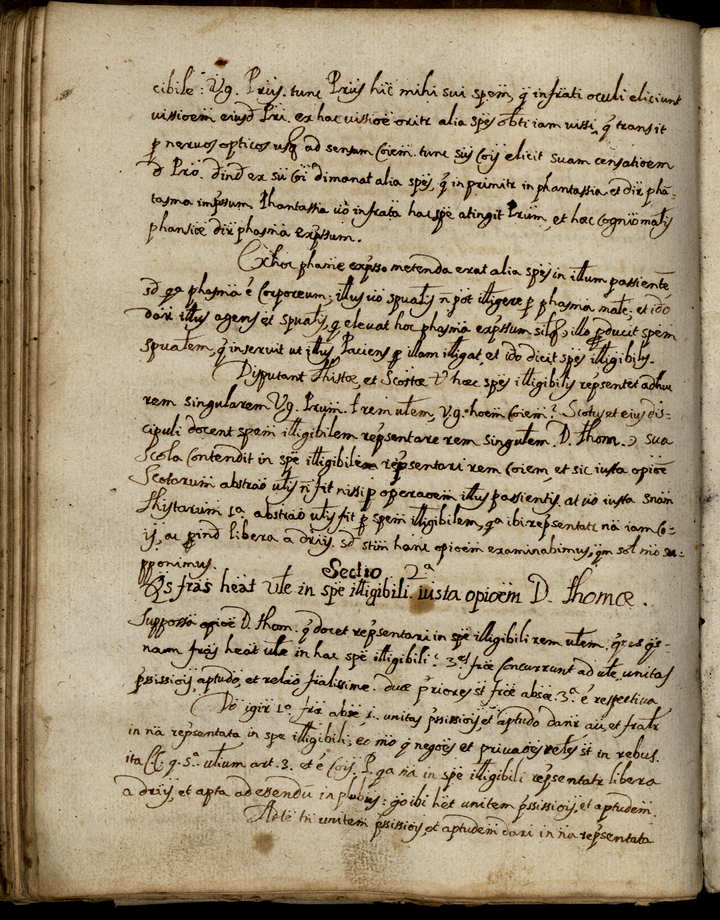 cibile: Vg. Prus. tunc Prus hic mihi sui spem, q infrati oculi eliciunt
vissioem eiusd Pri. ex hac vissioe oritr alia spes obti iam vissi, q transit
p nervos opticos usq ad sensum Coiem. tunc sus Cois elicit suam censatioem
d Pro. dind ex su Coi dimanat alia spes, q inprimitr in phantassia et dir pha-
tasma impssum. Phantassia vo infrata hac spe atingit Prum, et haec cognio malis
phansioe dir phasma expssum.
Ex hoc phame expsso metenda erat alia spes in illum passiente
sd qa phasma e Corporeum; illus vo spualis n pot illigere p phasma male; et ido
dari illus agens et spualis, q elevat hoc phasma expssum silq, illo pducit spem
spualem, q inservit ut illus Paciens p illam illigat et ido dicit spes illigibilis.
Disputant thistae, et Scostae haec spes illigibilis repsentet adhuc
rem singularem Vg. Prum. l rem ulem, Vg. hoem Coiem? Scotus et eius dis-
cipuli docent spem illigibilem repsentare rem singulem. D. thom. sua
scola Contendit in spe illigibile repsentari rem Coiem, et sic iusta opioe
Scotarum abstrao ulis n fit nissi p operaoem illus passientis. at vo iusta snan
thistarum 1a abstrao ulis fit p spem illigibilem, qa ibi repsentatr na iam Co-
is, ac pind libera a driis. sd stim hanc opioem examinabimus, qm sol mo su-
pponimus.
Sectio 2a
Qs fras heat ule in spe illigibili iusta opioem D. thomae.
Suppossa opioe D. thom. q docet repsentari in spe illigibili rem ulem. qs
nam fras heat ule in hac spe illigibili? 3es frae Concurrunt ad ule, unitas
pssissiois, aptudo, et relao fralissime. duae priores st frae absae. 3a e respectiva
Do igir 1o frae absae 1. unitas pssissiois, et aptudo dantr au, et fratr
in na repsentata in spe illigibili, eo mo q negoes et privaoes reles st in rebus.
ita CC: q. 5a ulium art. 3. et e Cois. P. qa na in spe illigibili repsentatr libera
a driis, et apta ad essendu in plubus: go ibi het unitem pssissiois, et aptudem.
Ad te tn unitem pssissiois, et aptudem dari in na repsentata